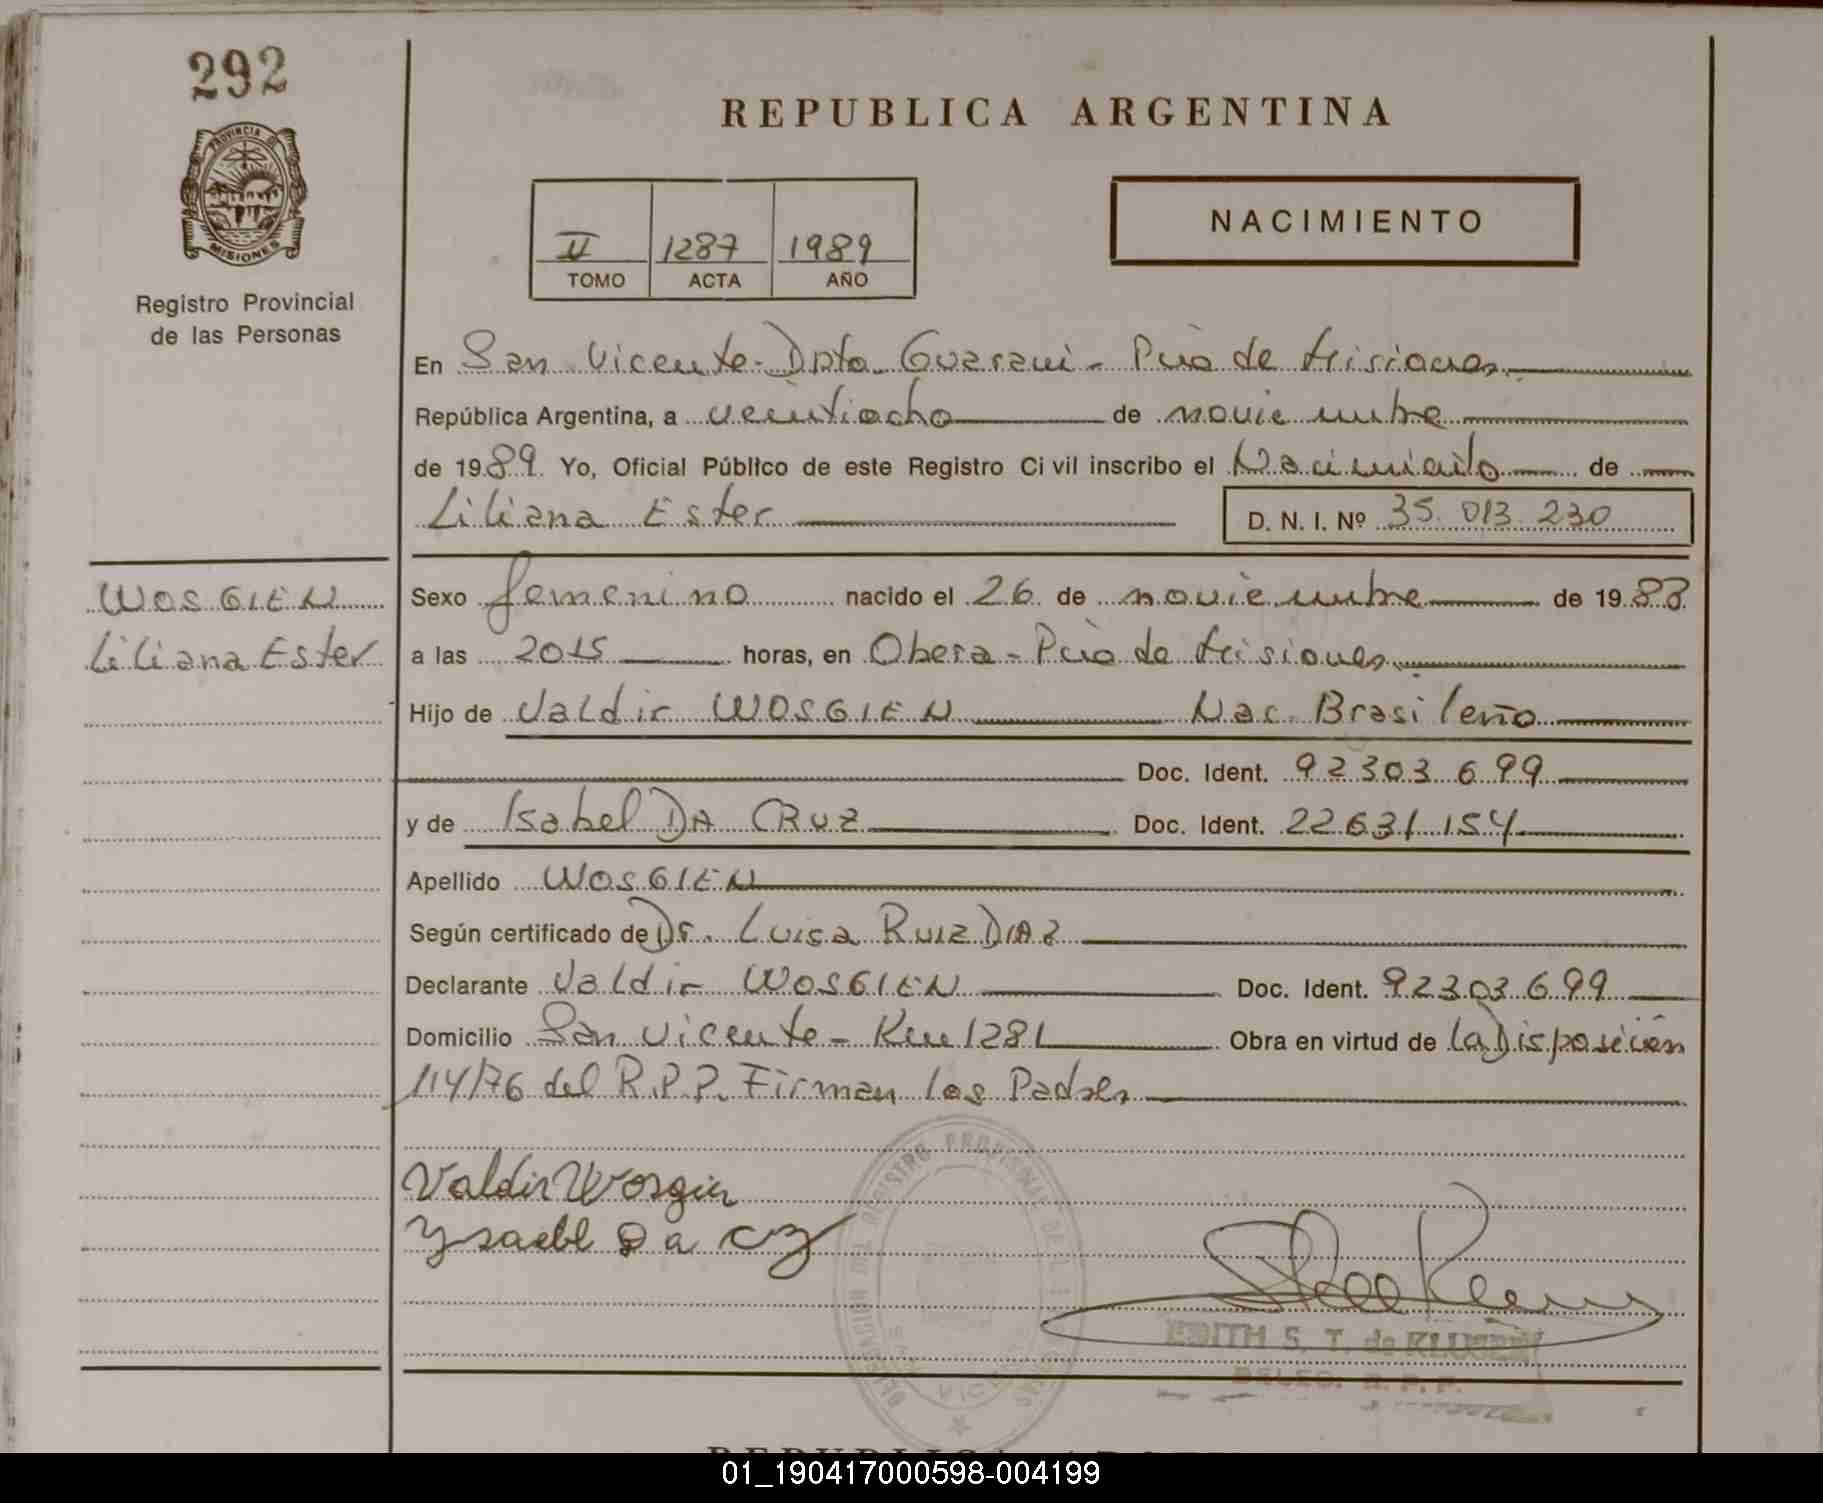 292
REPUBLICA ARGENTINA
PROVINCIA DE
MISIONES
Registro Provincial
de las Personas
II 1287 1989
TOMO ACTA AÑO
NACIMIENTO
En San Vicente - Dpto. Guarani - Pcia de Misiones
República Argentina, a veintiocho de noviembre
de 1989. Yo, Oficial Público de este Registro Civil inscribo el Nacimiento de
Liliana Ester D. N. I. Nº 35.013.230
WOSGIEN
Liliana Ester
Sexo femenino nacido el 26 de noviembre de 1988
a las 2015 horas, en Obera - Pcia de Misiones
Hijo de Valdir WOSGIEN Nac. Brasileño
Doc. Ident. 92303699
y de Isabel DA CRUZ Doc. Ident. 22631154
Apellido WOSGIEN
Según certificado de Dr. Luisa RUIZ DIAZ
Declarante Valdir WOSGIEN Doc. Ident. 92303699
Domicilio San Vicente - Km 1281 Obra en virtud de la Disposición
114/76 del R.P.P. Firman los Padres
Valdir Wosgien
Ysaebl Da cz
EDITH S. T. de KLUSEN
DELEG. R. P. P.
01_190417000598-004199